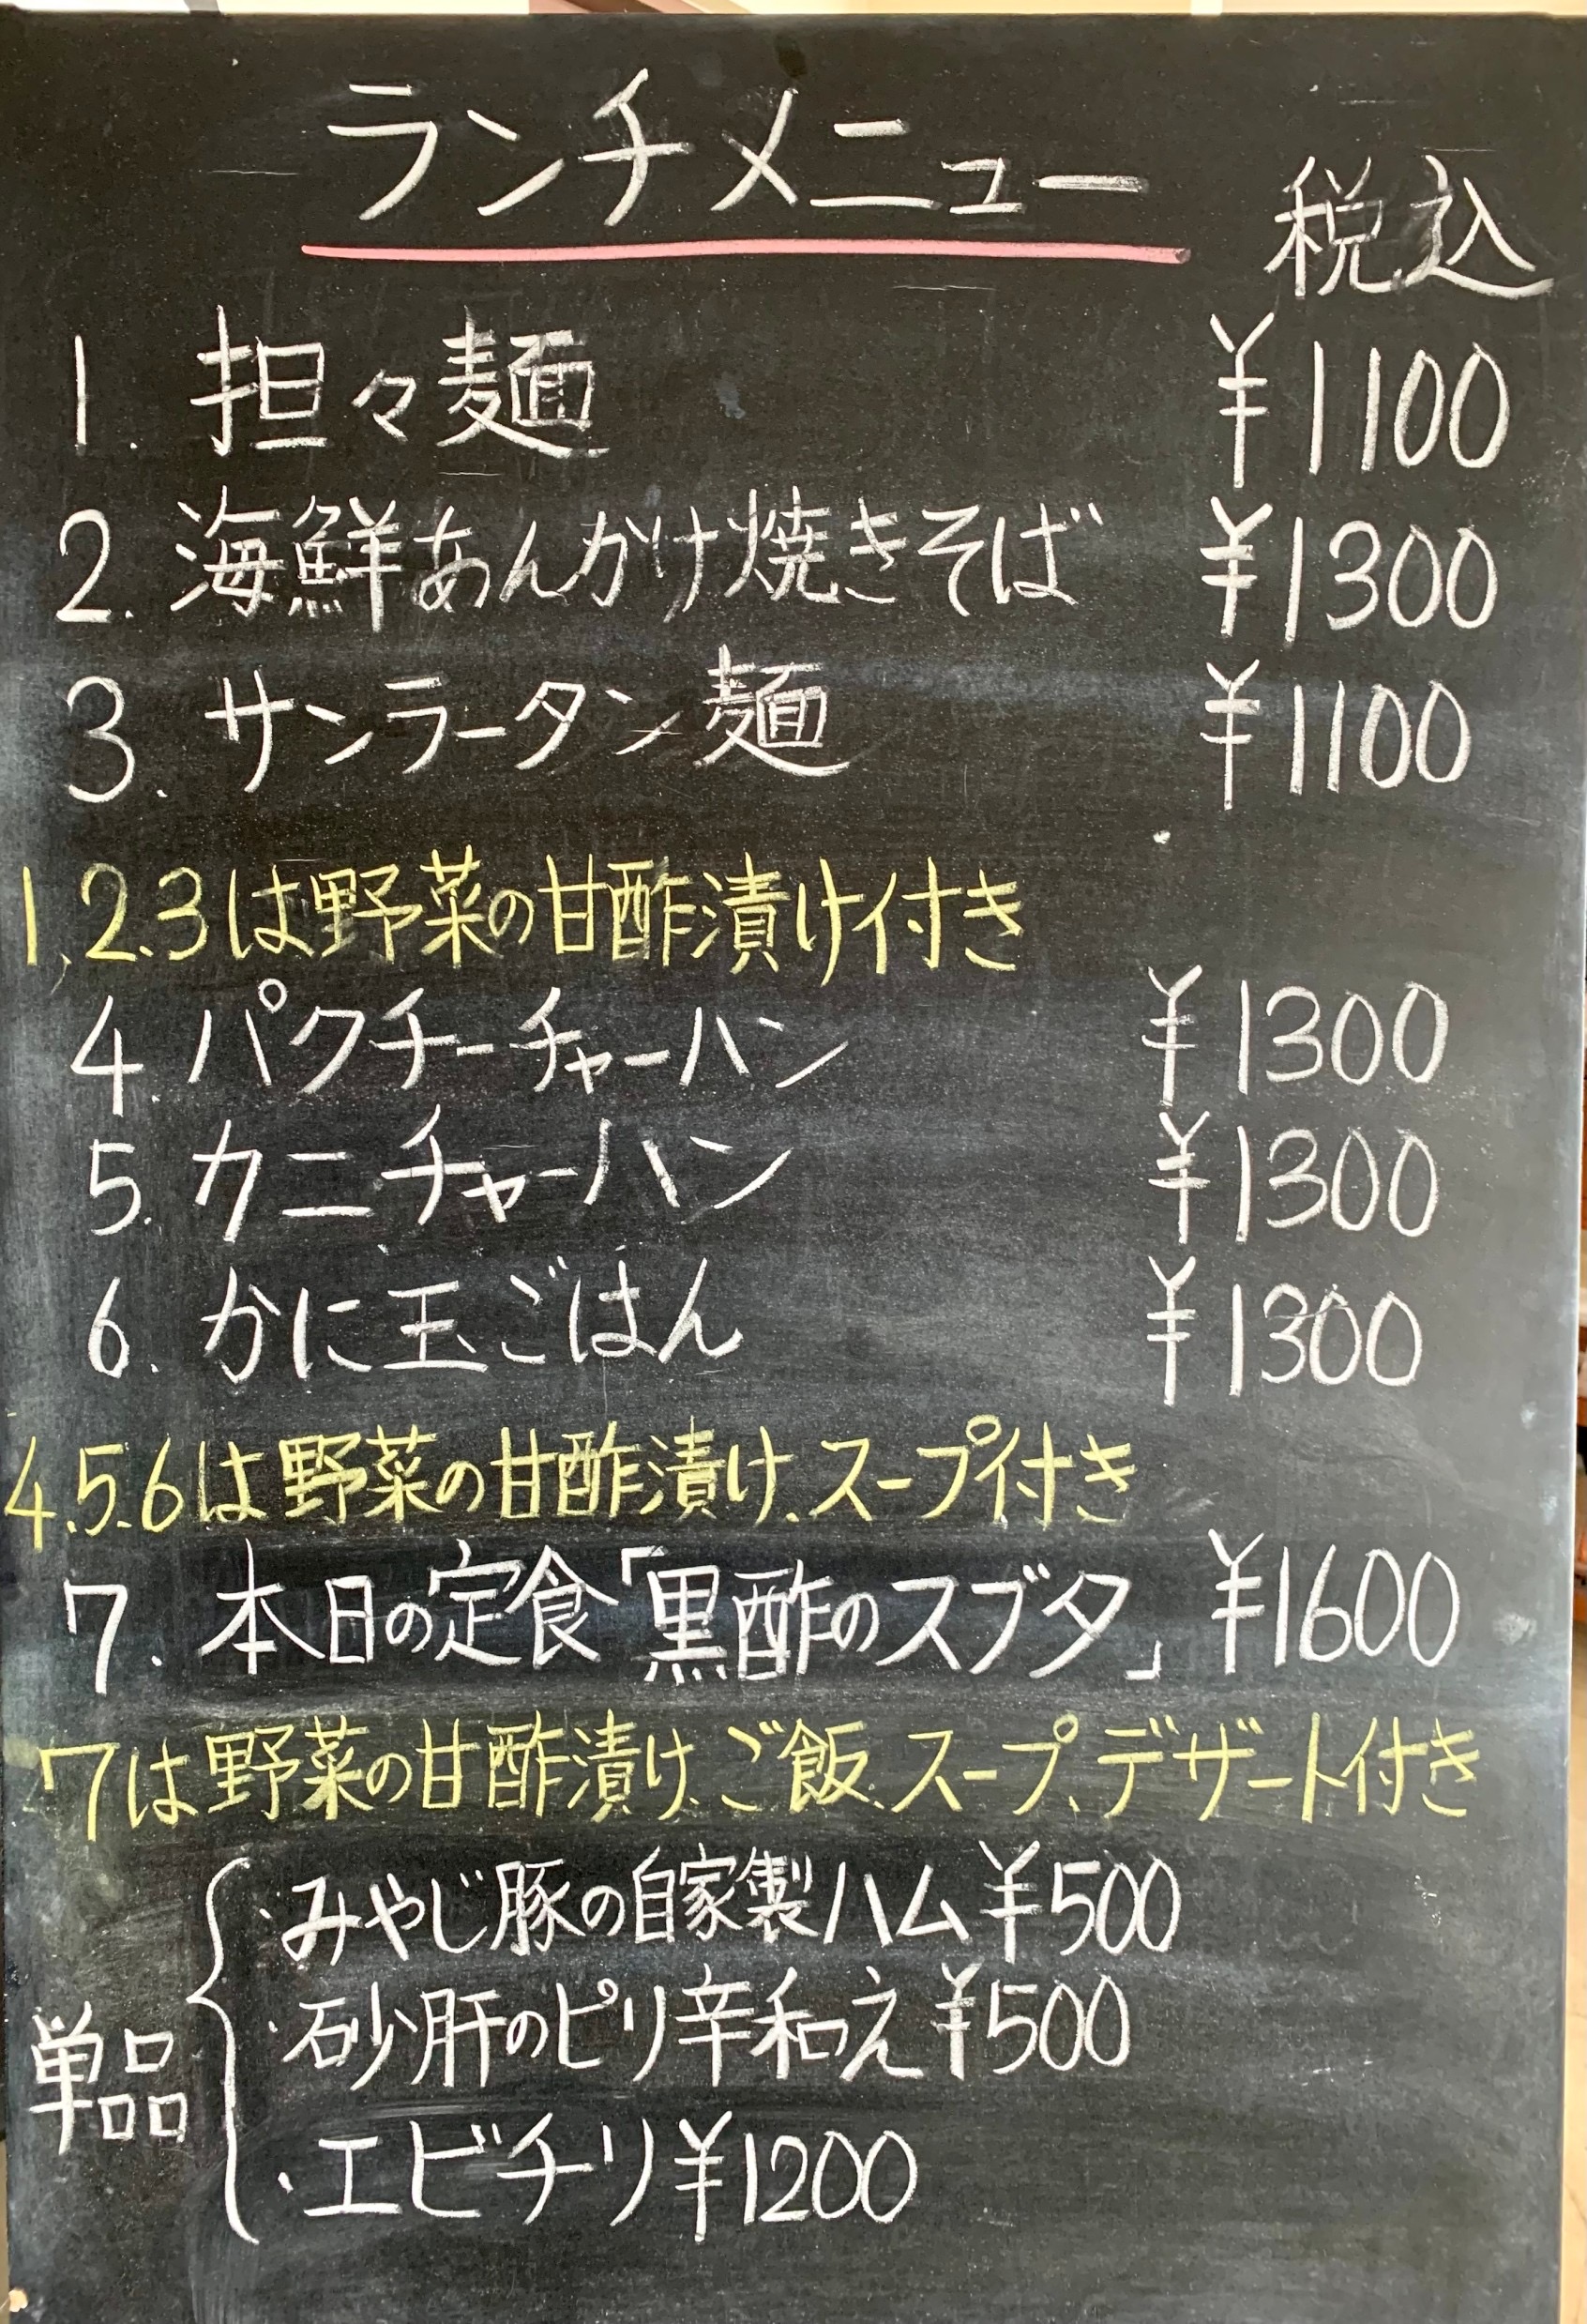 ランチメニュー
税込
1. 担々麺 ¥1100
2. 海鮮あんかけ焼きそば ¥1300
3. サンラータン麺 ¥1100
1,2.3は野菜の甘酢漬け付き
4. パクチーチャーハン ¥1300
5. カニチャーハン ¥1300
6. かに玉ごはん ¥1300
4.5.6は野菜の甘酢漬け、スープ付き
7. 本日の定食「黒酢のスブタ」 ¥1600
7は野菜の甘酢漬け、ご飯、スープ、デザート付き
単品
・みやじ豚の自家製ハム ¥500
・砂肝のピリ辛和え ¥500
・エビチリ ¥1200